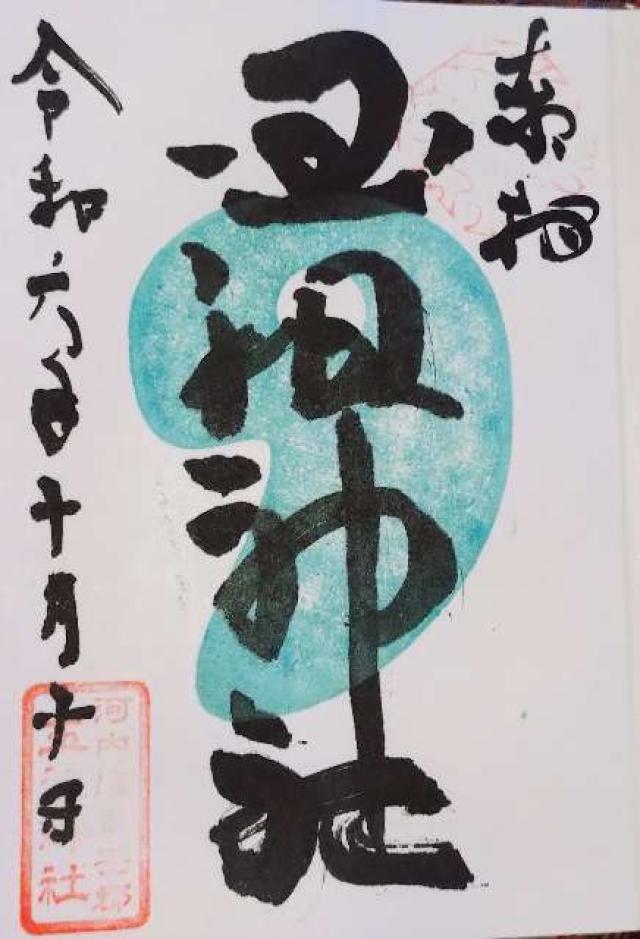 奉拝
玉祖神社
令和六年十月十日
河内
社